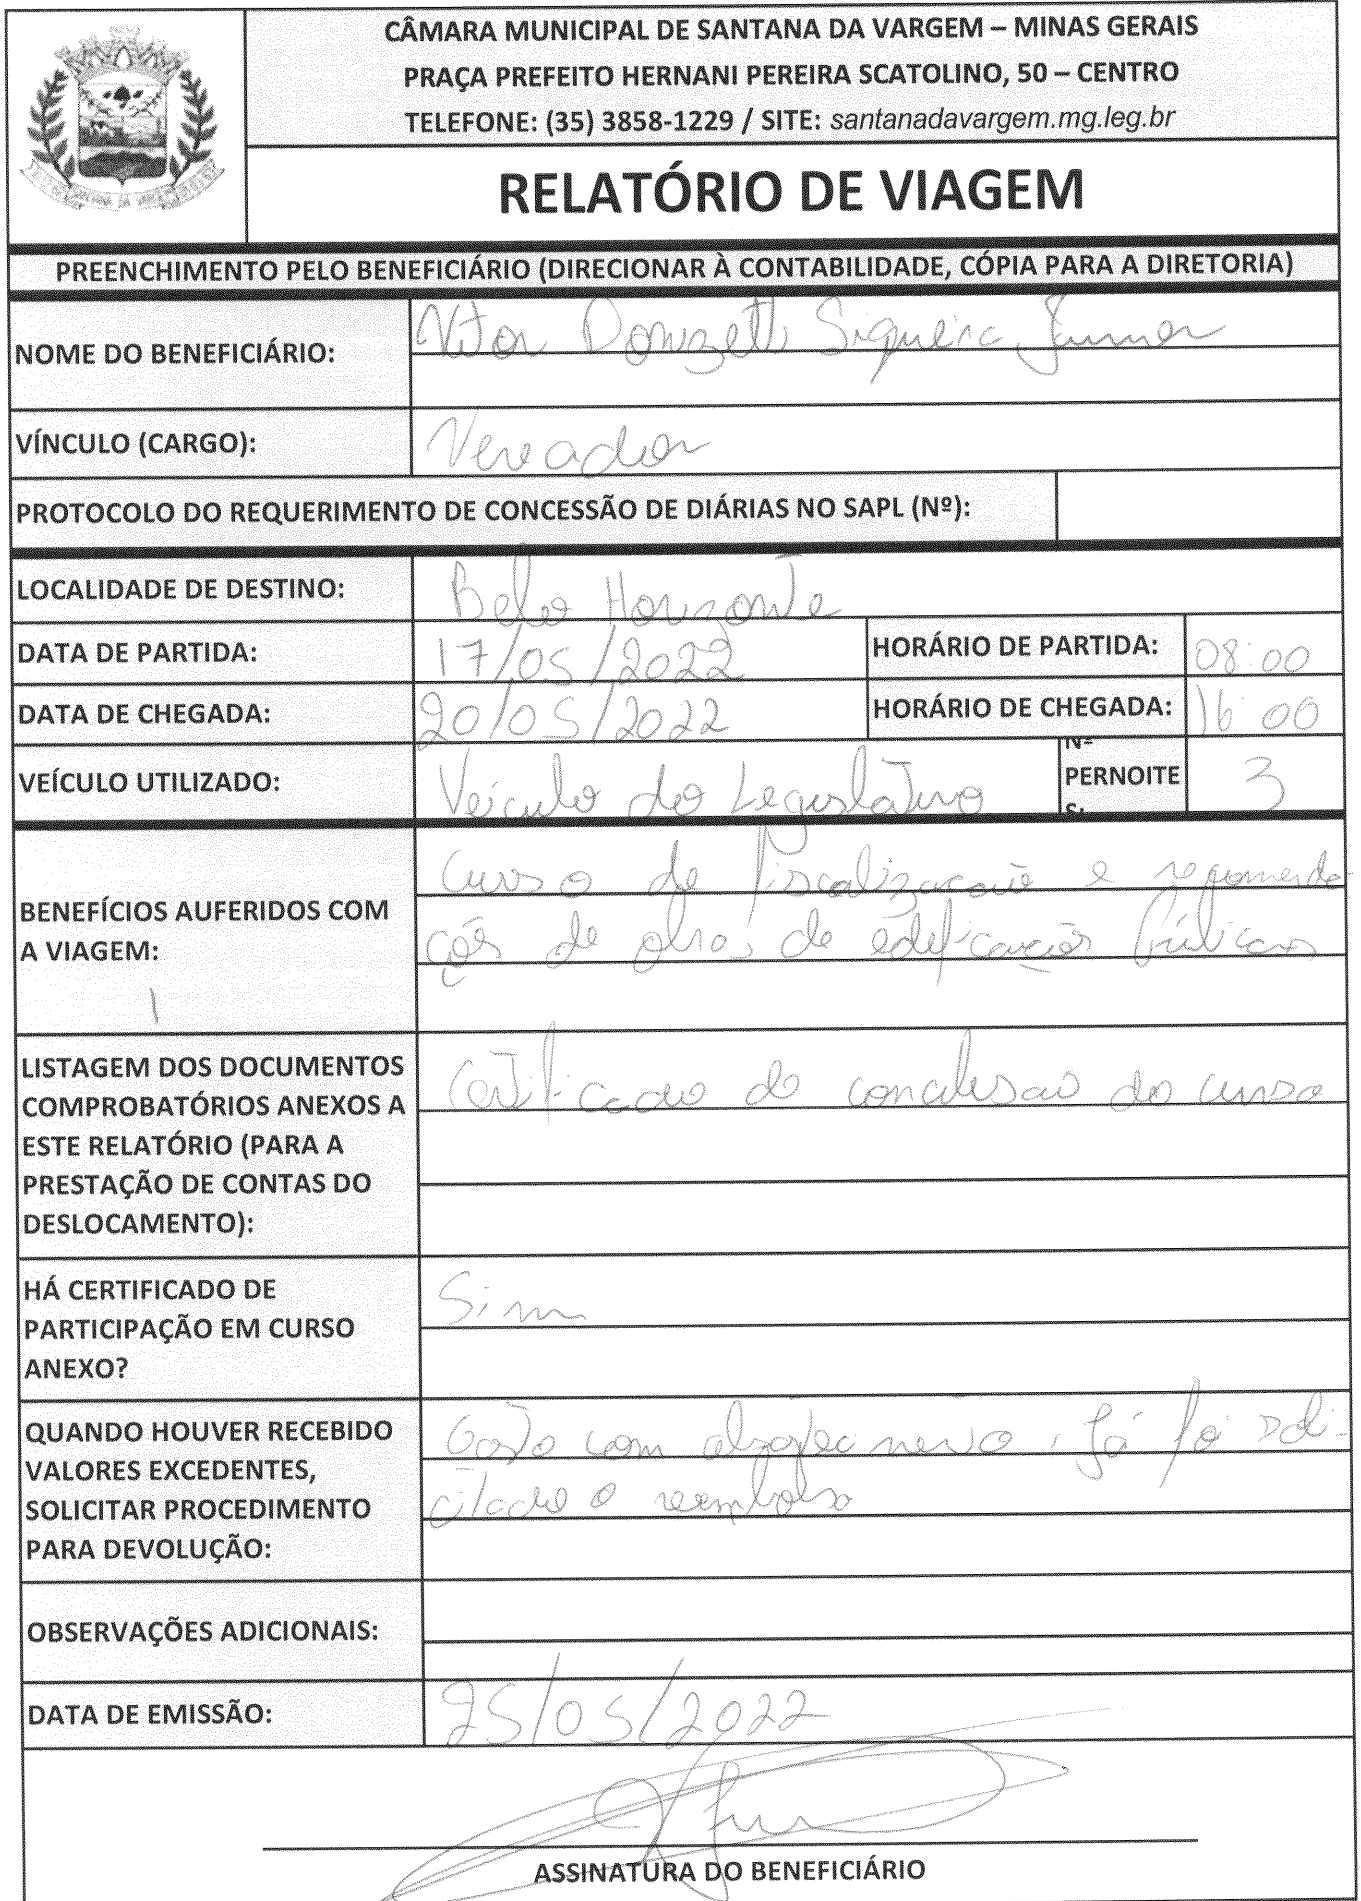 CÂMARA MUNICIPAL DE SANTANA DA VARGEM – MINAS GERAIS
PRAÇA PREFEITO HERNANI PEREIRA SCATOLINO, 50 – CENTRO
TELEFONE: (35) 3858-1229 / SITE: santanadavargem.mg.leg.br
RELATÓRIO DE VIAGEM
PREENCHIMENTO PELO BENEFICIÁRIO (DIRECIONAR À CONTABILIDADE, CÓPIA PARA A DIRETORIA)
NOME DO BENEFICIÁRIO: Vitor Donizetti Siqueira Junior
VÍNCULO (CARGO): Vereador
PROTOCOLO DO REQUERIMENTO DE CONCESSÃO DE DIÁRIAS NO SAPL (Nº):
LOCALIDADE DE DESTINO: Belo Horizonte
DATA DE PARTIDA: 17/05/2022 HORÁRIO DE PARTIDA: 08:00
DATA DE CHEGADA: 20/05/2022 HORÁRIO DE CHEGADA: 16:00
VEÍCULO UTILIZADO: Veículo do Legislativo
Nº
PERNOITE
S:
3
BENEFÍCIOS AUFERIDOS COM
A VIAGEM:
Curso de fiscalização e
ções de obras de edificações Públicas
LISTAGEM DOS DOCUMENTOS
COMPROBATÓRIOS ANEXOS A
ESTE RELATÓRIO (PARA A
PRESTAÇÃO DE CONTAS DO
DESLOCAMENTO):
Certificado de conclusão do curso
HÁ CERTIFICADO DE
PARTICIPAÇÃO EM CURSO
ANEXO?
Sim
QUANDO HOUVER RECEBIDO
VALORES EXCEDENTES,
SOLICITAR PROCEDIMENTO
PARA DEVOLUÇÃO:
Gasto com , já foi soli-
citado o reembolso
OBSERVAÇÕES ADICIONAIS:
DATA DE EMISSÃO: 25/05/2022
ASSINATURA DO BENEFICIÁRIO